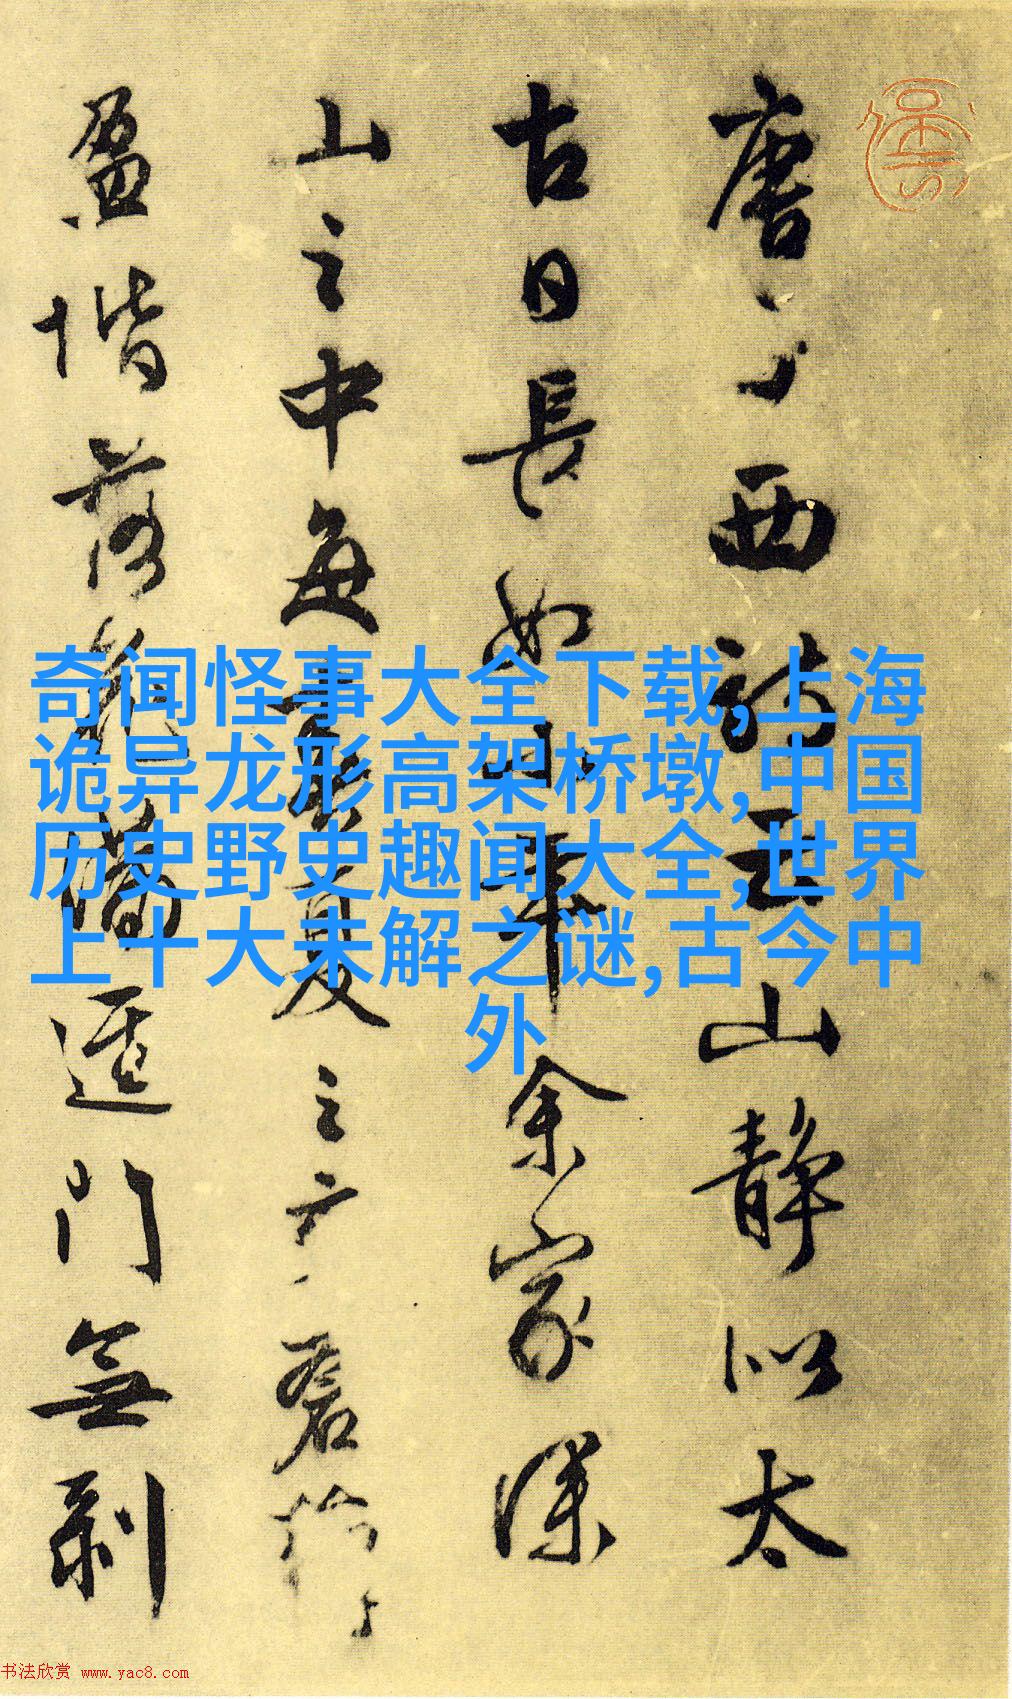 唐子西詩云山静似太
古日長如小年余家深
山之中每春夏之交蒼蘚
盈堦落花滿逕門無剥
奇闻怪事大全下载,上海
诡异龙形高架桥墩,中国
历史野史趣闻大全,世界
上十大未解之谜,古今中
外
书法欣赏 www.yac8.com